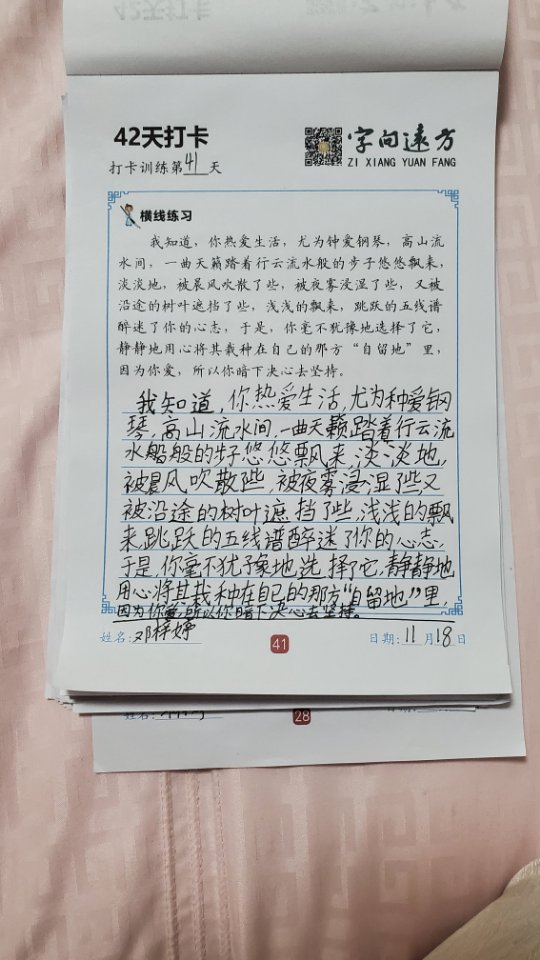 42天打卡
42天打卡
打卡训练第41天
字向远方
ZI XIANG YUAN FANG
横线练习
我知道，你热爱生活，尤为钟爱钢琴，高山流
水间，一曲天籁踏着行云流水般的步子悠悠飘来，
淡淡地，被晨风吹散了些，被夜雾浸湿了些，又被
沿途的树叶遮挡了些，浅浅的飘来，跳跃的五线谱
醉迷了你的心志，于是，你毫不犹豫地选择了它，
静静地用心将其栽种在自己的那方“自留地”里，
因为你爱，所以你暗下决心去坚持。
我知道，你热爱生活，尤为种爱钢
琴，高山流水间，一曲天籁踏着行云流
水船般的步子悠悠飘来，淡淡地，
被晨风吹散些，被夜雾浸湿了些，又
被沿途的树叶遮挡了些，浅浅的飘
来，跳跃的五线谱醉迷了你的心志，
于是，你毫不犹豫地选择了它，静静地
用心将其栽种在自己的那方“自留地”里，
因为你爱，所以你暗下决心去坚持。
姓名：邓梓婷
41
日期：11月18日
姓名：
28